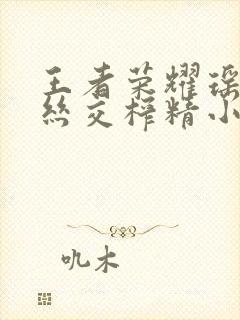 王者荣耀瑶
丝交榨精小
吼木